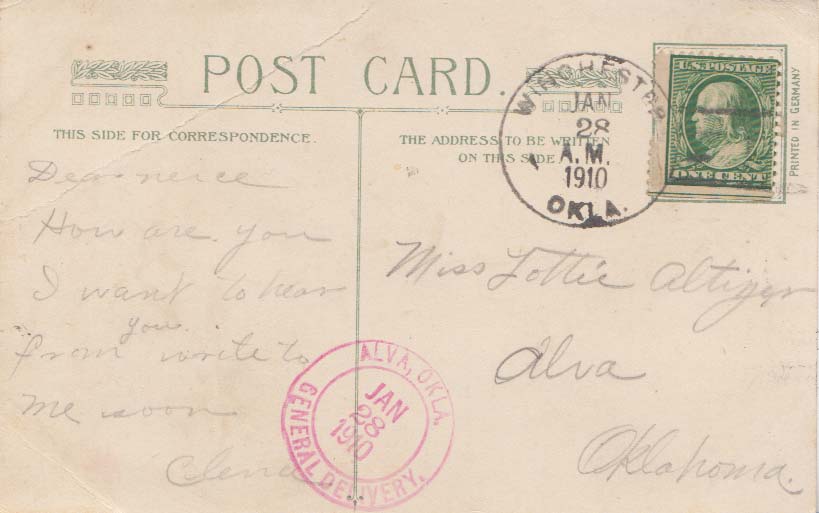 POST CARD.
THIS SIDE FOR CORRESPONDENCE.
THE ADDRESS TO BE WRITTEN
ON THIS SIDE
WINCHESTER
JAN
28
A.M.
1910
OKLA.
U.S. POSTAGE
ONE CENT
PRINTED IN GERMANY
Dear nerce
How are you
I want to hear
you.
from write to
me soon
Miss Lottie Altizer
Alva
Oklahoma.
ALVA, OKLA.
JAN
28
1910
GENERAL DELIVERY.